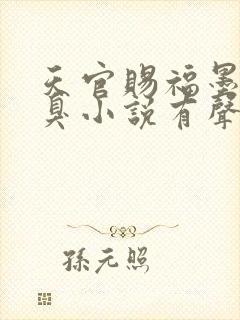 天官賜福墨
臭小說有聲
孫元照